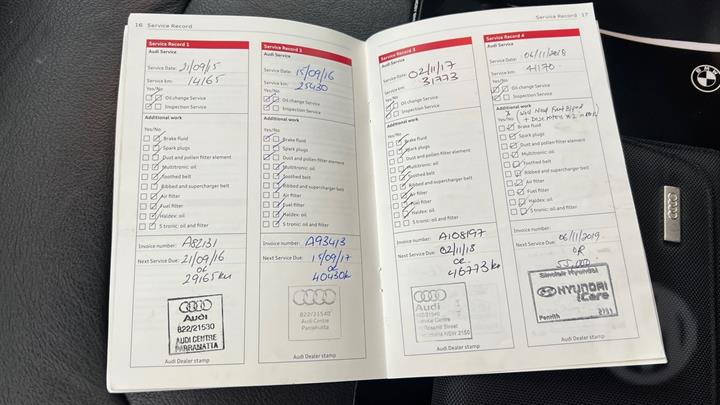 16 Service Record
Service Record 1
Audi Service
Service Date: 21/09/15
Service km: 14165
Yes/No
Oil change Service
Inspection Service
Additional work
Yes/No
Brake fluid
Spark plugs
Dust and pollen filter element
Multitronic: oil
Toothed belt
Ribbed and supercharger belt
Air filter
Fuel filter
Haldex: oil
S tronic: oil and filter
Invoice number: A82131
Next Service Due: 21/09/16
or
29165 km
Audi
822/21530
AUDI CENTRE
PARRAMATTA
Audi Dealer stamp
Service Record 2
Audi Service
Service Date: 15/09/16
Service km: 25430
Yes/No
Oil change Service
Inspection Service
Additional work
Yes/No
Brake fluid
Spark plugs
Dust and pollen filter element
Multitronic: oil
Toothed belt
Ribbed and supercharger belt
Air filter
Fuel filter
Haldex: oil
S tronic: oil and filter
Invoice number: A93413
Next Service Due: 15/09/17
or
40430k
822/21540
Audi Centre
Parramatta
Audi Dealer stamp
Service Record 17
Service Record 3
Audi Service
Service Date: 02/11/17
Service km: 31773
Yes/No
Oil change Service
Inspection Service
Additional work
Yes/No
Brake fluid
Spark plugs
Dust and pollen filter element
Multitronic: oil
Toothed belt
Ribbed and supercharger belt
Air filter
Fuel filter
Haldex: oil
S tronic: oil and filter
Invoice number: A108197
Next Service Due: 02/11/18
or
46773 km
Audi
822/21540
Centre
Street
NSW 2150
Audi Dealer stamp
Service Record 4
Audi Service
Service Date: 06/11/2018
Service km: 41170
Yes/No
Oil change Service
Inspection Service
Additional work
Will Need Front
Yes/No
+ Disc Rotors x2 in
Brake fluid
Spark plugs
Dust and pollen filter element
Multitronic: oil
Toothed belt
Ribbed and supercharger belt
Air filter
Fuel filter
Haldex: oil
S tronic: oil and filter
Invoice number:
Next Service Due: 06/11/2019
OR
55,000
Sinclair Hyundai
HYUNDAI
iCare
Penrith
Audi Dealer stamp
BMW